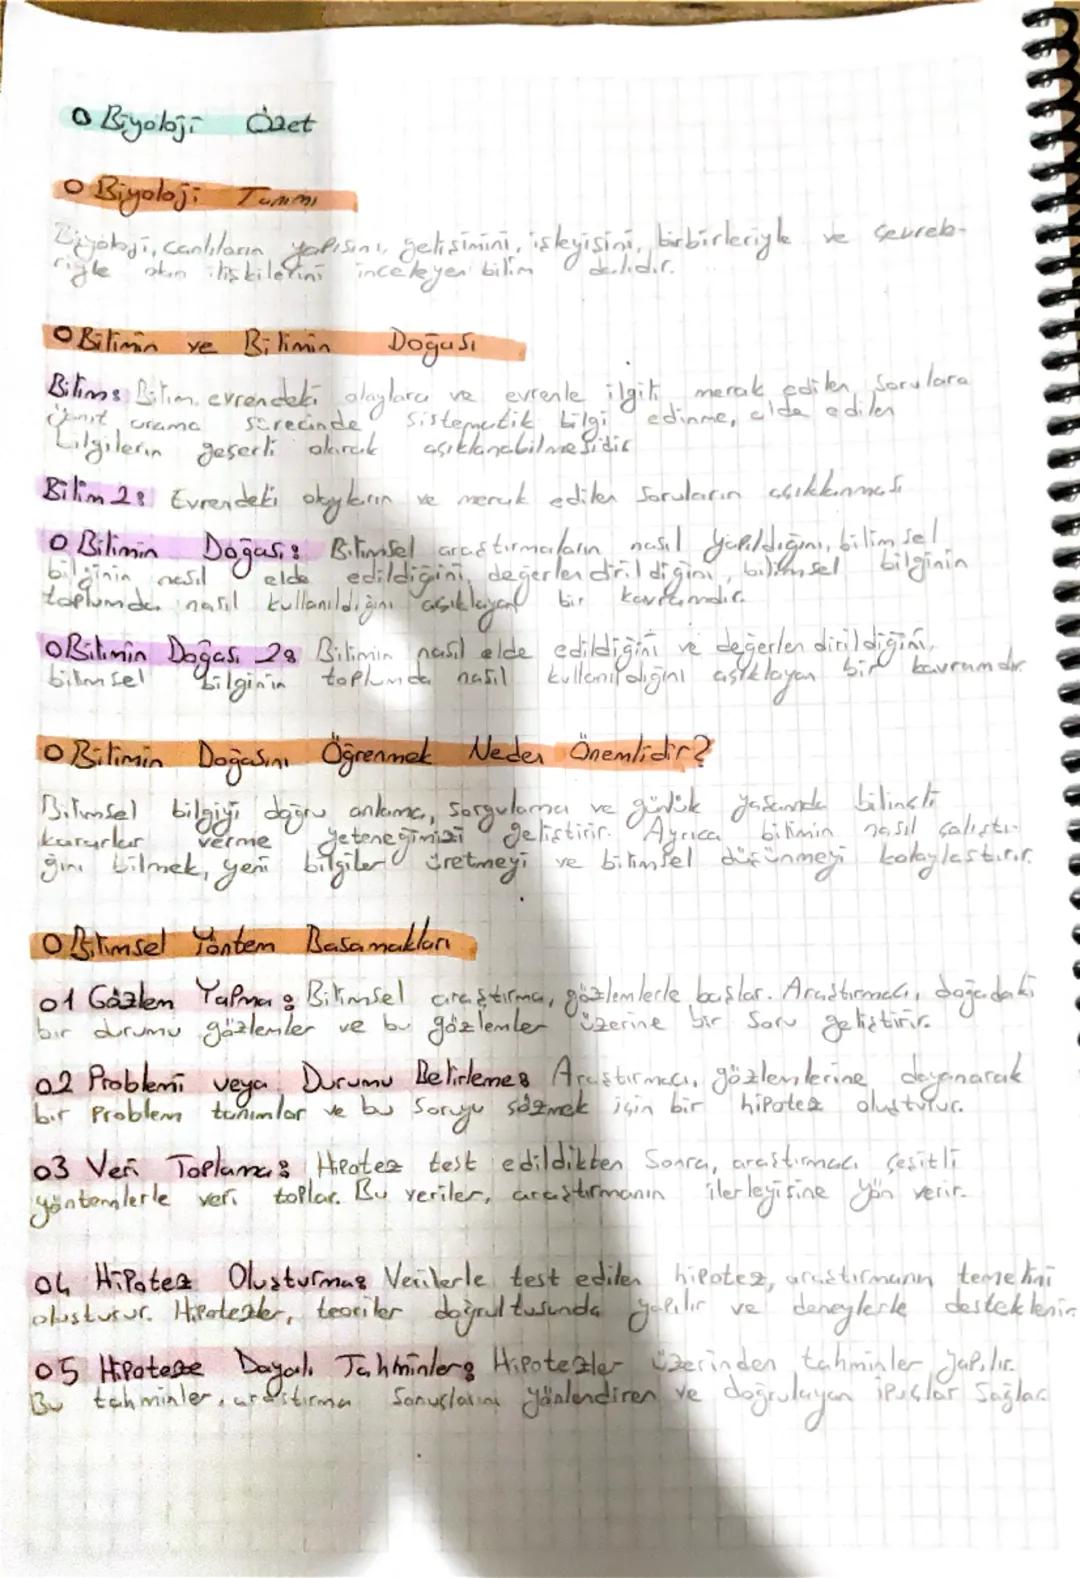 Biyoloji Özet
Biyoloji Tanımı
Biyoloji, canlıların yapısını, gelişimini, işleyişini, birbirleriyle ve çevrele-
riyle olan ilişkilerini inceleyen bilim dalıdır.
Bilimin ve Bilimin Doğası
Bilim: Bilim, evrendeki olaylara ve evrenle ilgili merak edilen sorulara
yanıt arama sürecinde sistematik bilgi edinme, elde edilen
bilgilerin geçerli olarak açıklanabilmesidir
Bilim 2: Evrendeki olayların ve merak edilen soruların açıklanması
Bilimin Doğası: Bilimsel araştırmaların nasıl yapıldığını, bilimsel
bilginin nasıl elde edildiğini, değerlendirildiğini, bilimsel bilginin
toplumda nasıl kullanıldığını açıklayan bir kavramdır.
Bilimin Doğası 2: Bilimin nasıl elde edildiğini ve değerlendirildiğini,
bilimsel bilginin toplumda nasıl kullanıldığını açıklayan bir kavramdır.
Bilimin Doğasını Öğrenmek Neden Önemlidir?
Bilimsel bilgiyi doğru anlama, sorgulama ve günlük yaşamda bilinçli
kararlar verme yeteneğimizi geliştirir. Ayrıca bilimin nasıl çalıştı-
ğını bilmek, yeni bilgiler üretmeyi ve bilimsel düşünmeyi kolaylaştırır.
Bilimsel Yöntem Basamakları
1 Gözlem Yapma: Bilimsel araştırma, gözlemlerle başlar. Araştırmacı, doğadaki
bir durumu gözlemler ve bu gözlemler üzerine bir soru geliştirir.
2 Problemi veya Durumu Belirleme: Araştırmacı, gözlemlerine dayanarak
bir problem tanımlar ve bu soruyu çözmek için bir hipotez oluşturur.
3 Veri Toplama: Hipotez test edildikten sonra, araştırmacı çeşitli
yöntemlerle veri toplar. Bu veriler, araştırmanın ilerleyişine yön verir.
4 Hipotez Oluşturma: Verilerle test edilen hipotez, araştırmanın temelini
oluşturur. Hipotezler, teoriler doğrultusunda yapılır ve deneylerle desteklenir.
5 Hipoteze Dayalı Tahminler: Hipotezler üzerinden tahminler yapılır.
Bu tahminler, araştırma sonuçlarını yönlendiren ve doğrulayan ipuçlar sağlar.